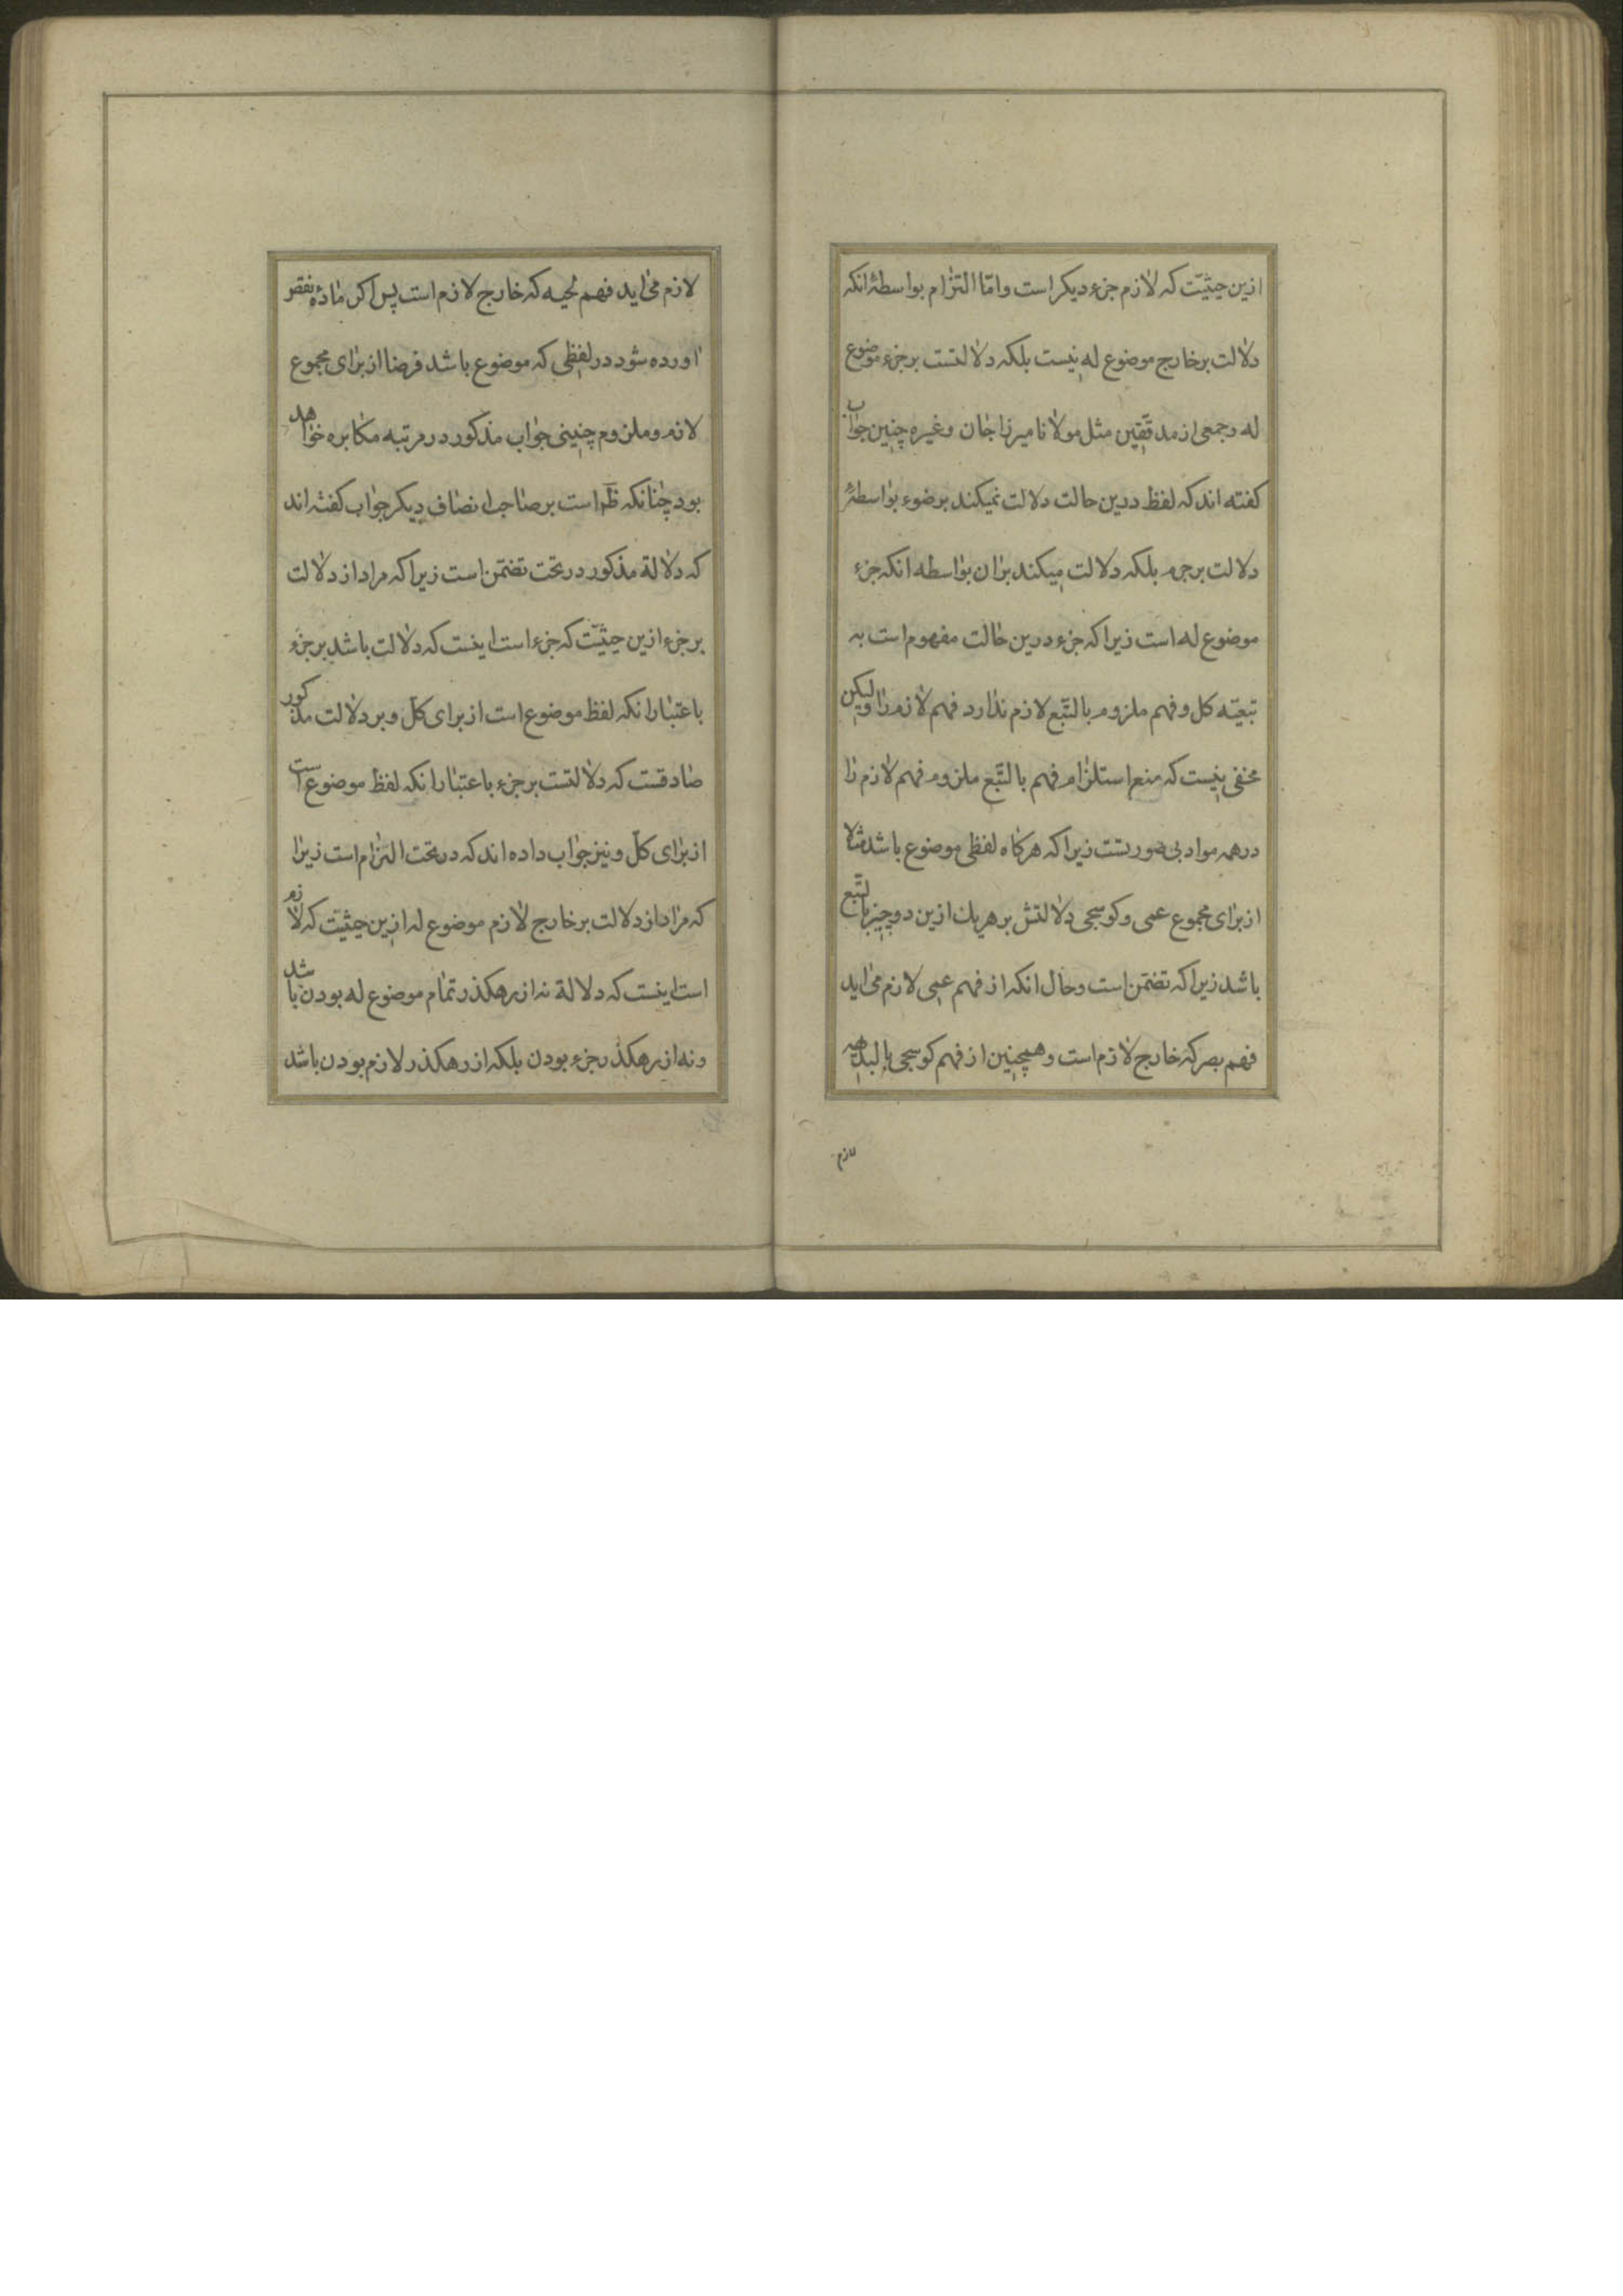 ازین حیثیّت که لازم جزء دیکر است وامّا التزام بواسطهٔ انکه
دلالت بر خارج موضوع له نیست بلکه دلالتست بر جزء موضوع
له وجمعی از مدققین مثل مولانا میرزا جان وغیره چنین جواب
کفته اند که لفظ درین حالت دلالت نمیکند بر ضوء بواسطهٔ
دلالت بر جرم بلکه دلالت میکند بران بواسطه انکه جزء
موضوع له است زیرا که جزء درین حالت مفهوم است به
تبعیّه کل وفهم ملزوم بالتّبع لازم ندارد فهم لازم را ولیکن
مخفی نیست که منع استلزام فهم بالتّبع ملزوم فهم لازم را
درهمه مواد بی صورتست زیرا که هرکاه لفظی موضوع باشد مثلا
از برای مجموع عمی وکوسجی دلالتش بر هریک ازین دو چیز بالتّبع
باشد زیرا که تضمّن است وحال انکه از فهم عمی لازم می اید
فهم بصر که خارج لازم است وهمچنین از فهم کوسجی بالبدیهه
لازم
لازم می اید فهم لحیه که خارج لازم است پس اکر مادّهٔ نقض
اورده شود در لفظی که موضوع باشد فرضا از برای مجموع
لازم وملزوم چنینی جواب مذکور در مرتبه مکابره خواهد
بود چنانکه ظَم است بر صاحب انصاف دیکر جواب کفته اند
که دلالة مذکور در تحت تضمّن است زیرا که مراد از دلالت
بر جزء ازین حیثیّت که جزء است اینست که دلالت باشد بر جزء
باعتبار انکه لفظ موضوع است از برای کل وبر دلالت مذکور
صادقست که دلالتست بر جزء باعتبار انکه لفظ موضوع است
از برای کلّ ونیز جواب داده اند که در تحت التزام است زیرا
که مراد از دلالت بر خارج لازم موضوع له ازین حیثیّت که لازم
است اینست که دلالة نه از رهکذر تمام موضوع له بودن باشد
ونه از رهکذر جزء بودن بلکه از رهکذر لازم بودن باشد